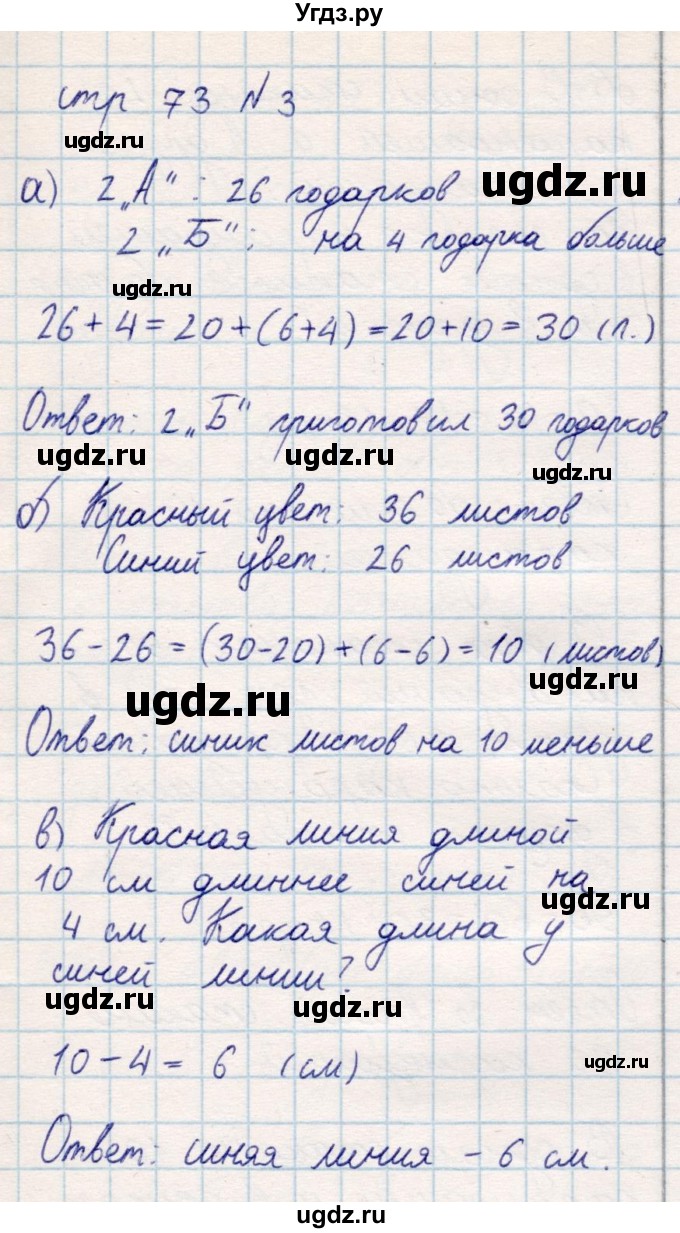 Угдз.ру
стр 73 №3
ugdz.ru
а) 2„А“ : 26 подарков
ugdz.ru
2 „Б“: на 4 подарка больше
ugdz.ru
26 + 4 = 20 + (6+4) = 20+10 = 30 (п.)
Ответ: 2„Б“ приготовил 30 подарков
ugdz.ru
ugdz.ru
ugdz.ru
б) Красный цвет: 36 листов
Синий цвет: 26 листов
ugdz.ru
ugdz.ru
36 - 26 = (30-20) + (6-6) = 10 (листов)
ugdz.ru
ugdz.ru
Ответ: синих листов на 10 меньше
ugdz.ru
ugdz.ru
в) Красная линия длиной
10 см длиннее синей на
ugdz.ru
4 см. Какая длина у
синей линии?
ugdz.ru
ugdz.ru
10 - 4 = 6 (см)
ugdz.ru
Ответ: синяя линия - 6 см.
ugdz.ru